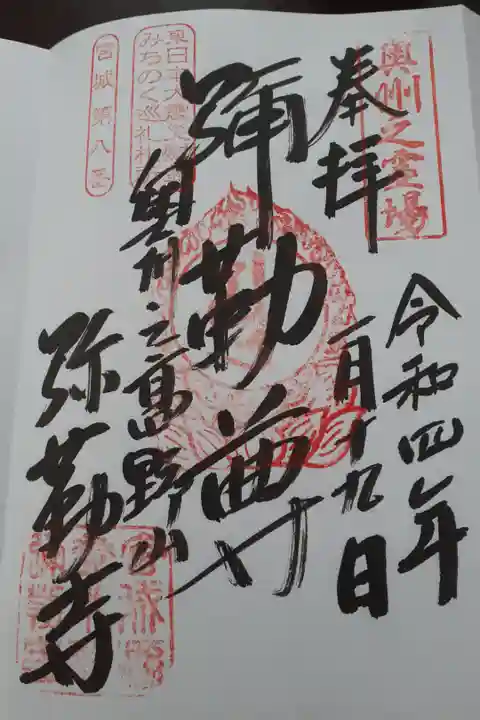 奥州之霊場
奉拝
令和四年
一月十九日
弥勒尊
奥州之高野山
弥勒寺
東日本大震災
みちのく巡礼
宮城第八番